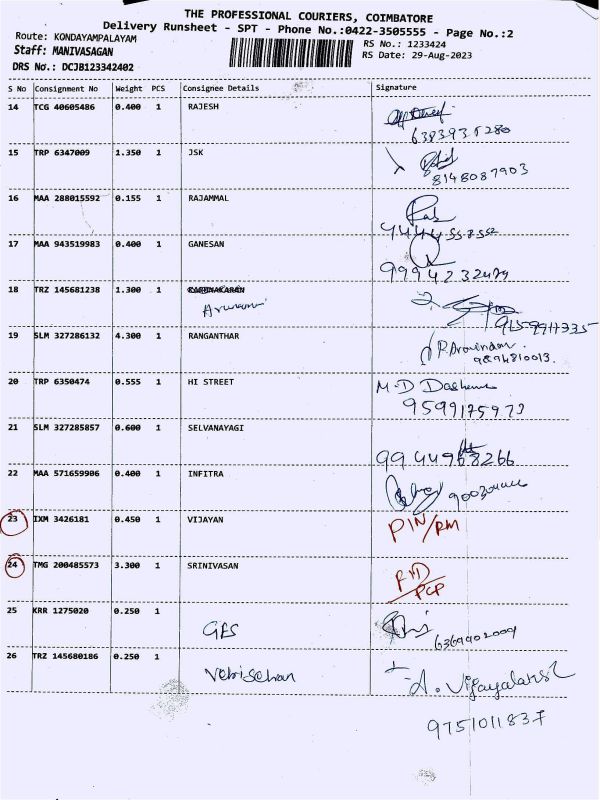 THE PROFESSIONAL COURIERS, COIMBATORE
Delivery Runsheet - SPT - Phone No.:0422-3505555 - Page No.:2
Route: KONDAYAMPALAYAM
RS No.: 1233424
Staff: MANIVASAGAN
RS Date: 29-Aug-2023
DRS No.: DCJB123342402
S No Consignment No Weight PCS Consignee Details Signature
14 TCG 40605486 0.400 1 RAJESH
6383935280
15 TRP 6347009 1.350 1 JSK
8148087903
16 MAA 288015592 0.155 1 RAJAMMAL
17 MAA 943519983 0.400 1 GANESAN
18 TRZ 145681238 1.300 1
19 SLM 327286132 4.300 1 RANGANTHAR P. Aravindan.
9894810013.
20 TRP 6350474 0.555 1 HI STREET M.D
21 SLM 327285857 0.600 1 SELVANAYAGI
9944968266
22 MAA 571659906 0.400 1 INFITRA
23 IXM 3426181 0.450 1 VIJAYAN PIN/RM
24 TMG 200485573 3.300 1 SRINIVASAN
PCP
25 KRR 1275020 0.250 1
6369902009
26 TRZ 145680186 0.250 1
9751011837